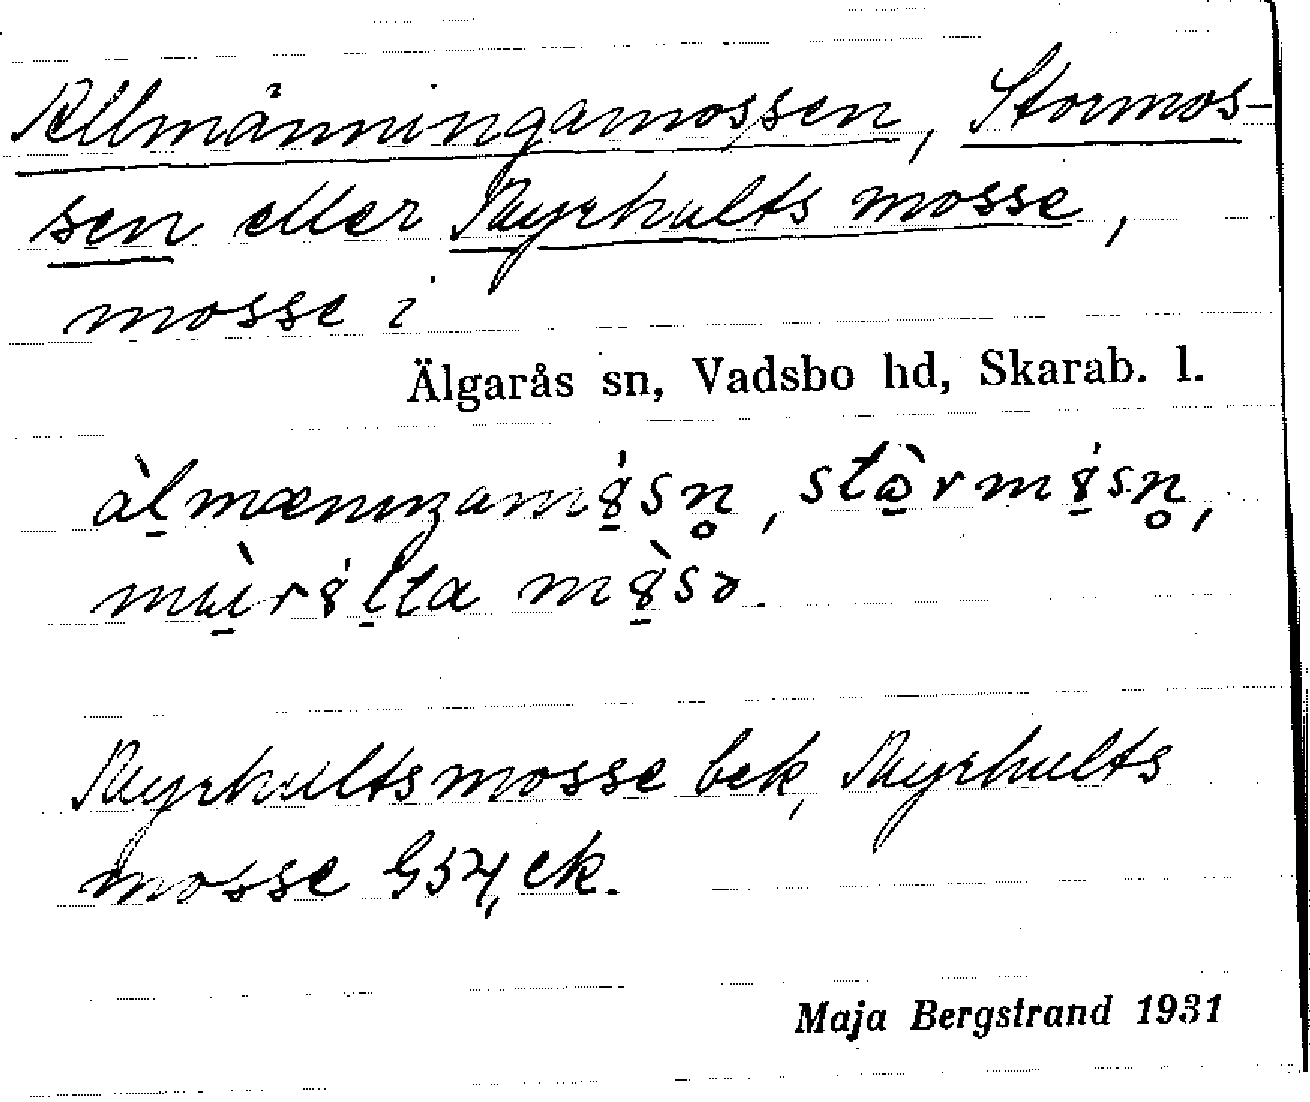 Allmänningamossen, Stormos-
sen eller Myrhults mosse,
mosse i
Älgarås sn, Vadsbo hd, Skarab. l.
àl̠mænıŋamɞ̠́sn̥, stɷ̠̀rmɞ̠́sn̥,
mɯ̠̀rɞ́l̠ta mɞ̠̀sə.
Myrhultsmosse bek, Myrhults
mosse G54, ek.
Maja Bergstrand 1931